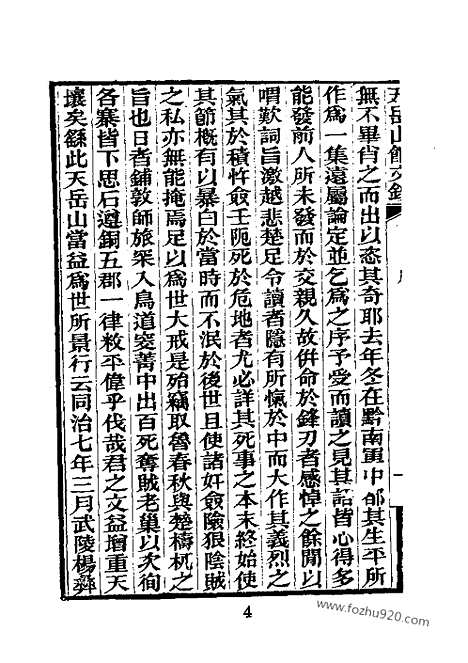 天岳山館文鈔
序
一
無不畢肖之而出以恣其奇耶去年冬在黔南軍中郵其生平所
作爲一集遠屬論定並乞爲之序予受而讀之見其詣皆心得多
能發前人所未發而於交親久故倂命於鋒刃者感悼之餘閒以
喟歎詞旨激越悲楚足令讀者隱有所愾於中而大作其義烈之
氣其於積忤僉壬阨死於危地者尤必詳其死事之本末終始使
其節槪有以暴白於當時而不泯於後世且使諸奸僉險狠陰賊
之私亦無能掩焉足以爲世大戒是殆竊取魯春秋與楚檮杌之
旨也日者鋪敦師旅罙入鳥道窔菁中出百死奪賊老巢以次徇
各寨皆下思石遵銅五郡一律敉平偉乎伐哉君之文益增重天
壤矣繇此天岳山當益爲世所景行云同治七年三月武陵楊彝
4
www.fozhu920.com